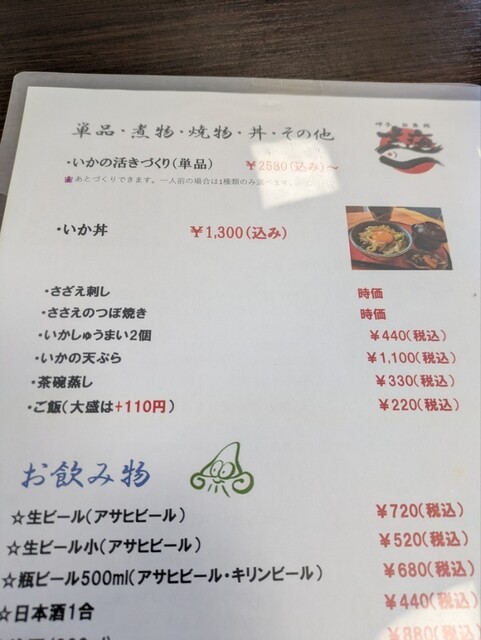 単品・煮物・焼物・丼・その他
・いかの活きづくり(単品) ￥2530(込み)～
あとづくりできます。一人前の場合は1種類のみ
・いか丼 ￥1,300(込み)
・さざえ刺し 時価
・ささえのつぼ焼き 時価
・いかしゅうまい2個 ￥440(税込)
・いかの天ぷら ￥1,100(税込)
・茶碗蒸し ￥330(税込)
・ご飯(大盛は+110円) ￥220(税込)
お飲み物
☆生ビール(アサヒビール) ￥720(税込)
☆生ビール小(アサヒビール) ￥520(税込)
☆瓶ビール500ml(アサヒビール・キリンビール) ￥680(税込)
☆日本酒1合 ￥440(税込)
￥880(税込)